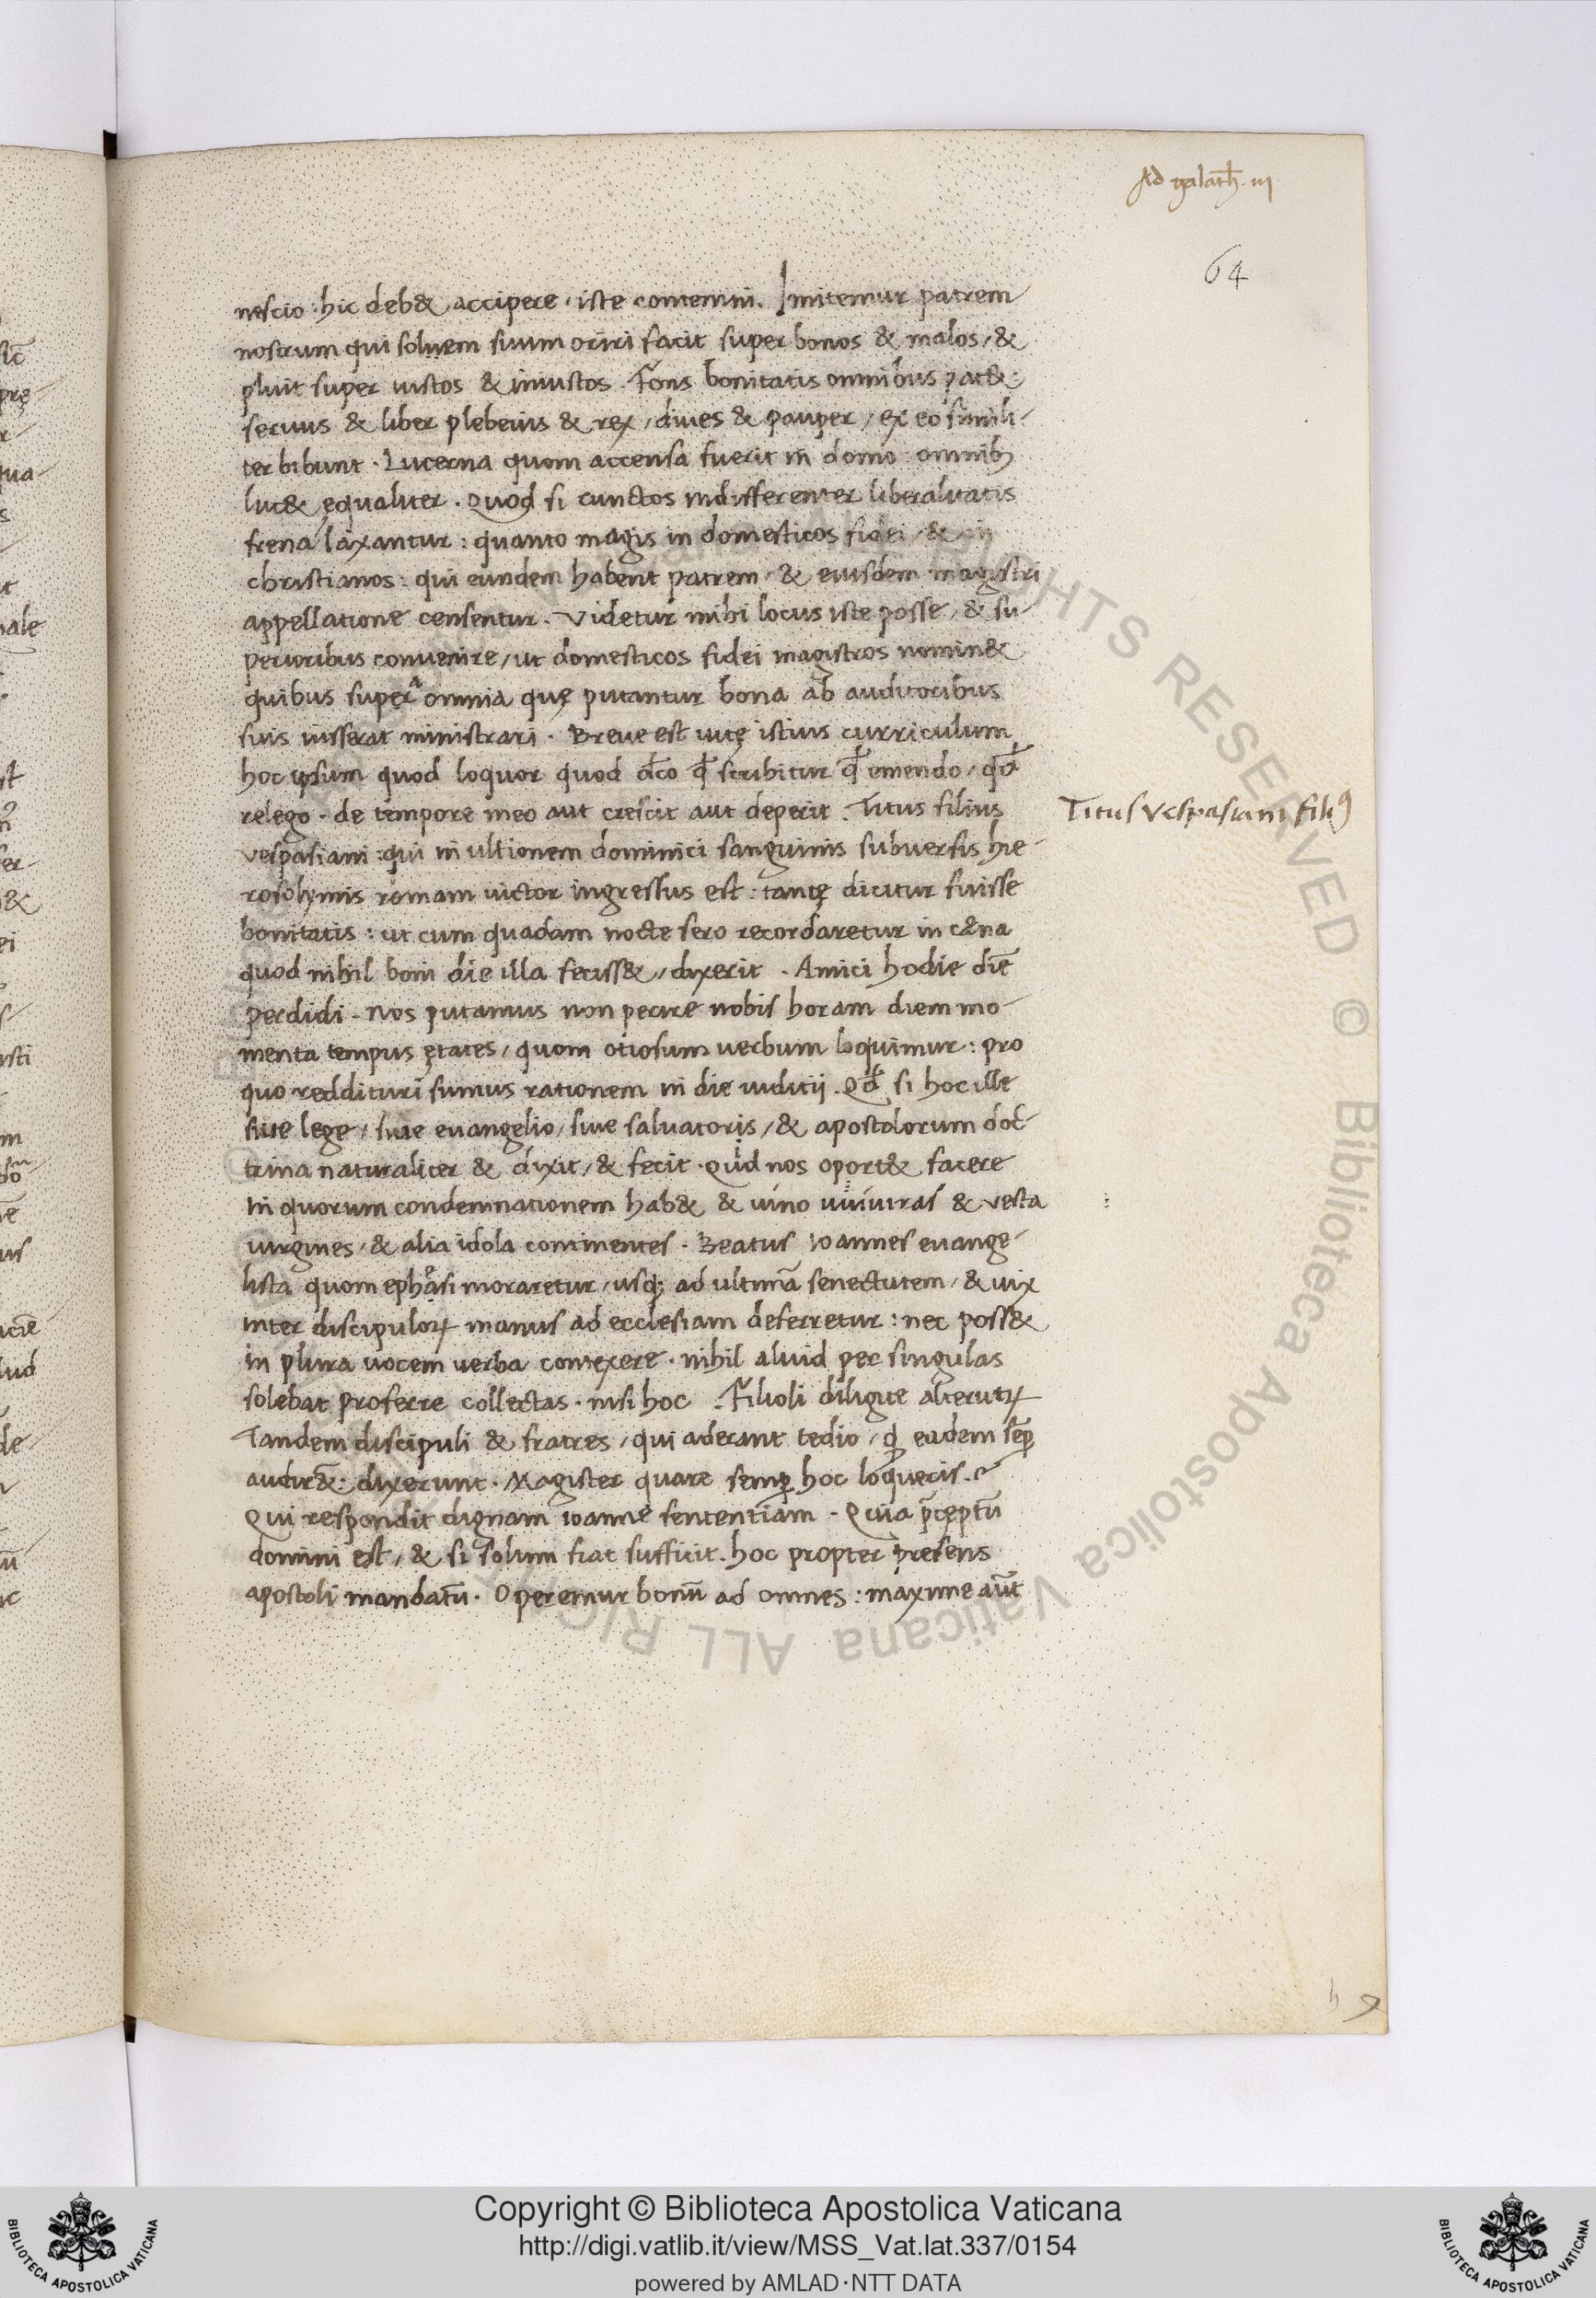 Ad galath. iii
64
nescio: hic deb& accipere. iste contemni. Imitemur patrem
nostrum qui soluem suum oriri facit super bonos & malos, &
pluit super iustos & iniustos. Fons bonitatis omnibus pat&:
seruus & liber plebeius & rex, diues & pauper, ex eo simili-
ter bibunt. Lucerna quom accensa fuerit in domo: omnibꝫ
luc& ęqualiter. Quod si cunctos indifferenter liberalitatis
frena laxantur: quanto magis in domesticos fidei, & in
christianos: qui eundem habent patrem, & eiusdem magistri
appellatione censentur. Videtur mihi locus iste posse, & su-
perioribus conuenire, ut domesticos fidei magistros nomin&
quibus supera omnia quę putantur bona ab auditoribus
suis iusserat ministrari. Breue est uitę istius curriculum
hoc ipsum quod loquor quod dco qđ scribitur qđ emendo, qđ
relego. de tempore meo aut crescit aut deperit. Titus filius
Titus Vespasiani filiꝰ
vespasiani: qui in ultionem dominici sanguinis subuersis hie-
rosolymis romam uictor ingressus est: tantę dicitur fuisse
bonitatis: ut cum quadam nocte sero recordaretur in cęna
quod nihil boni die illa feciss&, dixerit. Amici hodie diē
perdidi. Nos putamus non perire nobis horam diem mo-
menta tempus ętates, quom otiosum uerbum loquimur: pro
quo reddituri sumus rationem in die iuditij. Qđ si hoc ille
siue lege, siue euangelio, siue saluatoris, & apostolorum doc-
trina naturaliter & dixit, & fecit. Quid nos oport& facere
in quorum condemnationem hab& & uino uniuiras & vesta
uirgines, & alia idola continentes. Beatus ioannes euange-
lista quom ephasi moraretur, usqꝫ ad ultimā senectutem, & uix
inter discipuloꝝ manus ad ecclesiam deferretur: nec poss&
in plura uocem uerba contexere. nihil aliud per singulas
solebat proferre collectas. nisi hoc. Filioli diligite alterutꝝ
Tandem discipuli & fratres, qui aderant tedio, ꝙ eadem sēꝑ
audir&: dixerunt. Magister quare semꝑ hoc loqueris.
Qui respondit dignam ioanne sententiam. Quia p̄ceptū
domini est, & si solum fiat sufficit. hoc propter presens
apostoli mandatū. Operemur bonū ad omnes: maxime aūt
Copyright © Biblioteca Apostolica Vaticana
http://digi.vatlib.it/view/MSS_Vat.lat.337/0154
powered by AMLAD·NTT DATA